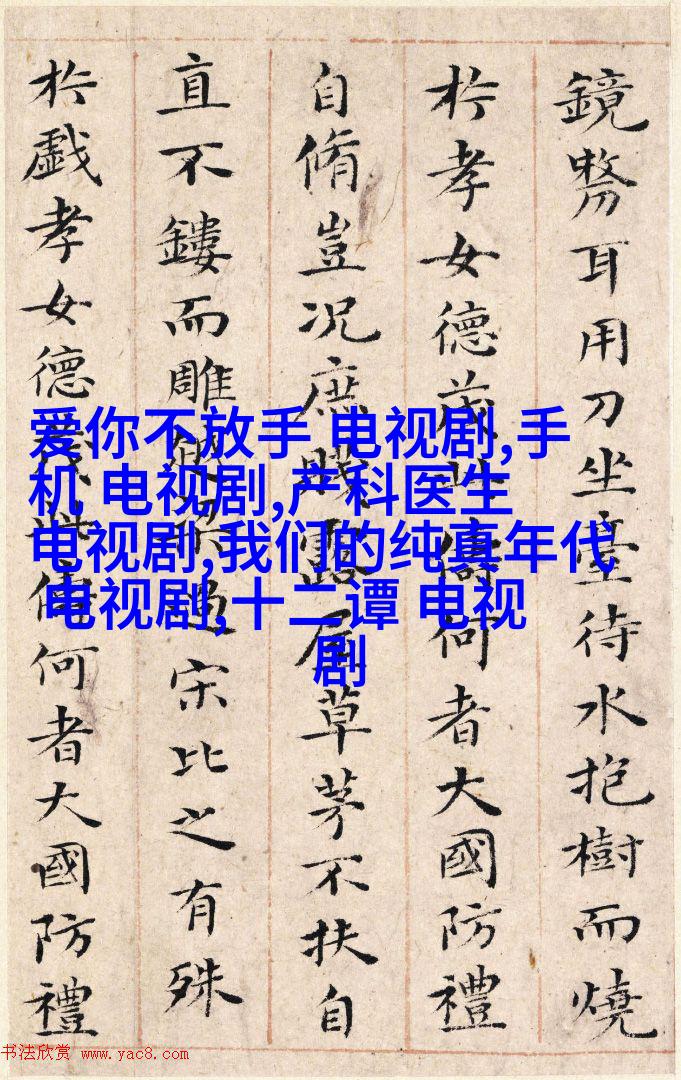 鏡剺耳用刀坐臺待水抱樹而燒
扵孝女德茂此儔何者大國防禮
自脩豈况庶賤露屋草茅不扶自
直不鏤而雕越梁過宋比之有殊
扵戲孝女德茂此儔何者大國防禮
爱你不放手 电视剧,手
机 电视剧,产科医生
电视剧,我们的纯真年代
电视剧,十二谭 电视
剧
书法欣赏 www.yac8.com